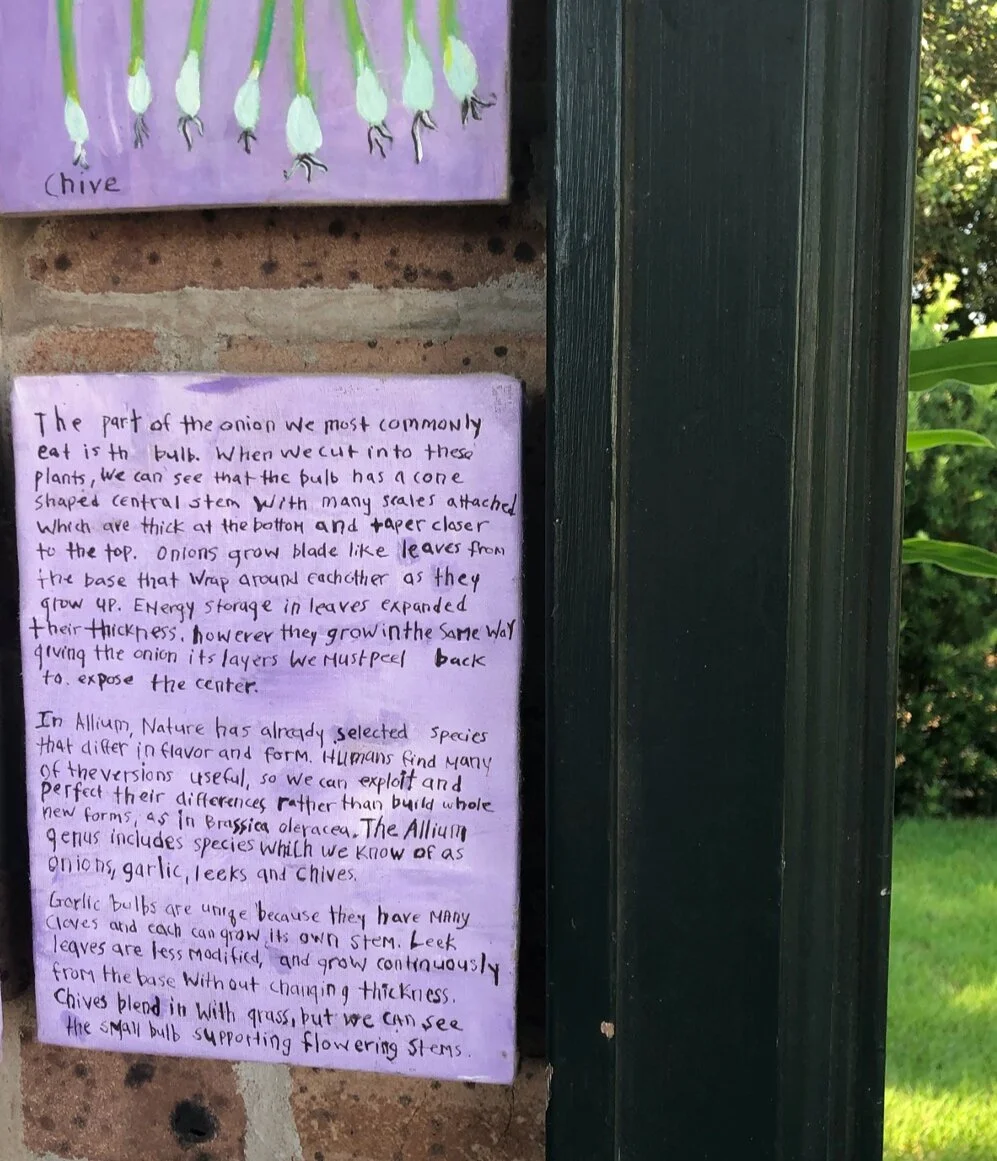 Chive
The part of the onion we most commonly
eat is th bulb. When we cut into these
plants, we can see that the bulb has a cone
shaped central stem with many scales attached
which are thick at the bottom and taper closer
to the top. Onions grow blade like leaves from
the base that wrap around eachother as they
grow up. Energy storage in leaves expanded
their thickness, however they grow in the same way
giving the onion its layers we must peel back
to expose the center.
In Allium, Nature has already selected species
that differ in flavor and form. Humans find many
of the versions useful, so we can exploit and
perfect their differences rather than build whole
new forms, as in Brassica oleracea. The Allium
genus includes species which we know of as
onions, garlic, leeks and chives.
Garlic bulbs are uniqe because they have many
cloves and each can grow its own stem. Leek
leaves are less modified, and grow continuously
from the base without changing thickness.
Chives blend in with grass, but we can see
the small bulb supporting flowering stems.